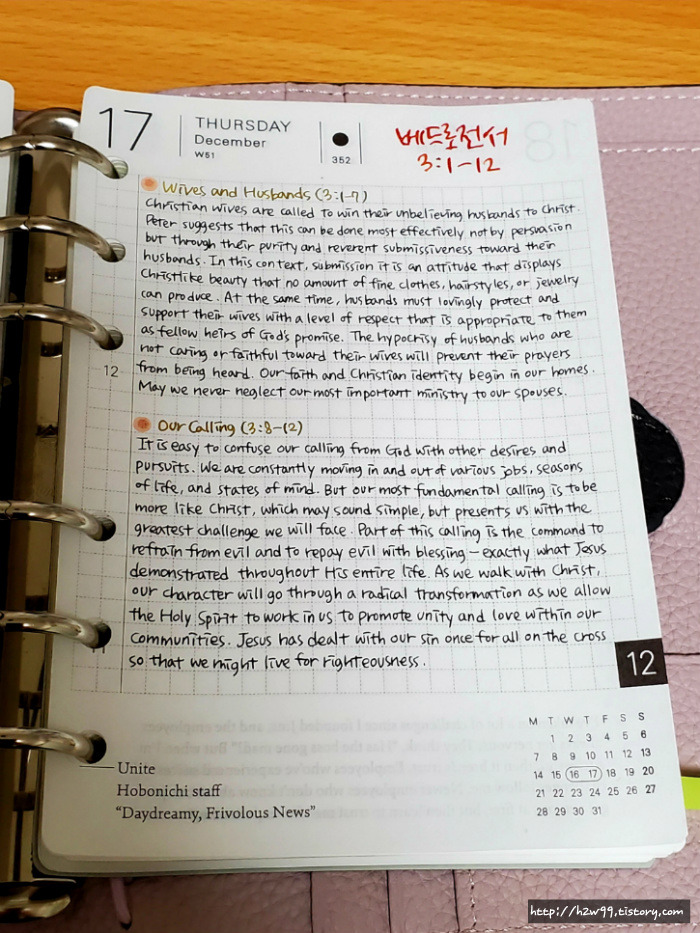 17
THURSDAY
December
W51
352
베드로전서
3:1-12
Wives and Husbands (3:1-7)
Christian wives are called to win their unbelieving husbands to Christ.
Peter suggests that this can be done most effectively not by persuasion
but through their purity and reverent submissiveness toward their
husbands. In this context, submission it is an attitude that displays
Christlike beauty that no amount of fine clothes, hairstyles, or jewelry
can produce. At the same time, husbands must lovingly protect and
support their wives with a level of respect that is appropriate to them
as fellow heirs of God's promise. The hypocrisy of husbands who are
not caring or faithful toward their wives will prevent their prayers
12
from being heard. Our faith and Christian identity begin in our homes.
May we never neglect our most important ministry to our spouses.
Our Calling (3:8-12)
It is easy to confuse our calling from God with other desires and
pursuits. We are constantly moving in and out of various jobs, seasons
of life, and states of mind. But our most fundamental calling is to be
more like Christ, which may sound simple, but presents us with the
greatest challenge we will face. Part of this calling is the command to
reftain from evil and to repay evil with blessing — exactly what Jesus
demonstrated throughout His entire life. As we walk with Christ,
our character will go through a radical transformation as we allow
the Holy Spirit to work in us to promote unity and love within our
communities. Jesus has dealt with our sin once for all on the cross
so that we might live for righteousness.
12
M T W T F S S
1 2 3 4 5 6
7 8 9 10 11 12 13
14 15 16 17 18 19 20
21 22 23 24 25 26 27
28 29 30 31
Unite
Hobonichi staff
"Daydreamy, Frivolous News"
http://h2w99.tistory.com